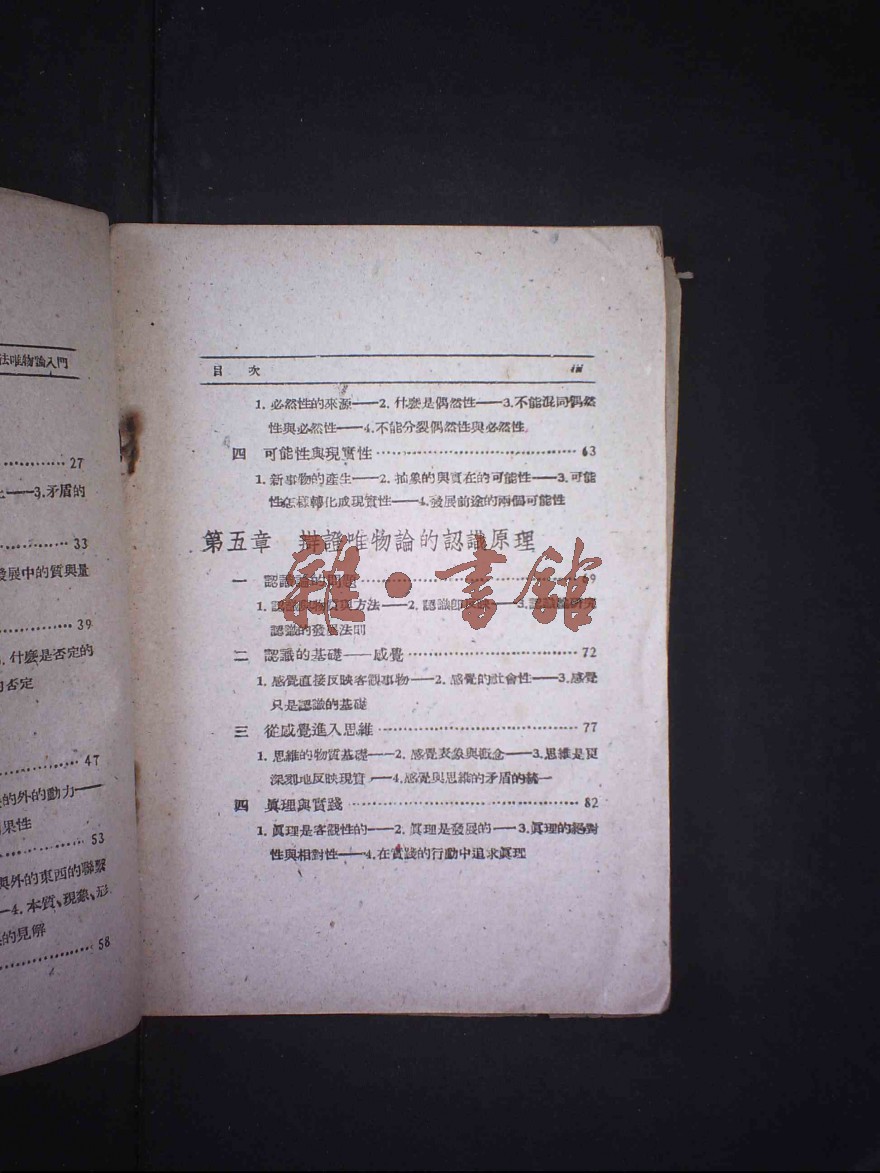 法唯物論入門
27
3.矛盾的
33
發展中的質與量
39
什麼是否定的
的否定
47
的外的動力——
果性
53
與外的東西的聯繫
—4.本質、現象、形
的見解
58
目 次
1. 必然性的來源——2. 什麼是偶然性——3.不能混同偶然
性與必然性——4.不能分裂偶然性與必然性
四 可能性與現實性 63
1. 新事物的產生——2. 抽象的與實在的可能性——3.可能
性怎樣轉化成現實性——4.發展前途的兩個可能性
第五章 辯證唯物論的認識原理
一 認識論的問題 69
1. 認識的物質與方法——2. 認識即反映——3.認識論研究
認識的發展法則
二 認識的基礎——感覺 72
1. 感覺直接反映客觀事物——2. 感覺的社會性——3.感覺
只是認識的基礎
三 從感覺進入思維 77
1. 思維的物質基礎——2. 感覺表象與觀念——3.思維是更
深刻地反映現實——4.感覺與思維的矛盾的統一
四 眞理與實踐 82
1. 眞理是客觀性的——2. 眞理是發展的——3.眞理的絕對
性與相對性——4.在實踐的行動中追求眞理
雜·書館